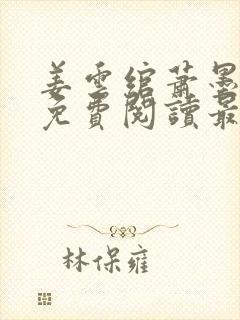 姜雲綰蕭墨
免費閱讀最
林保雍